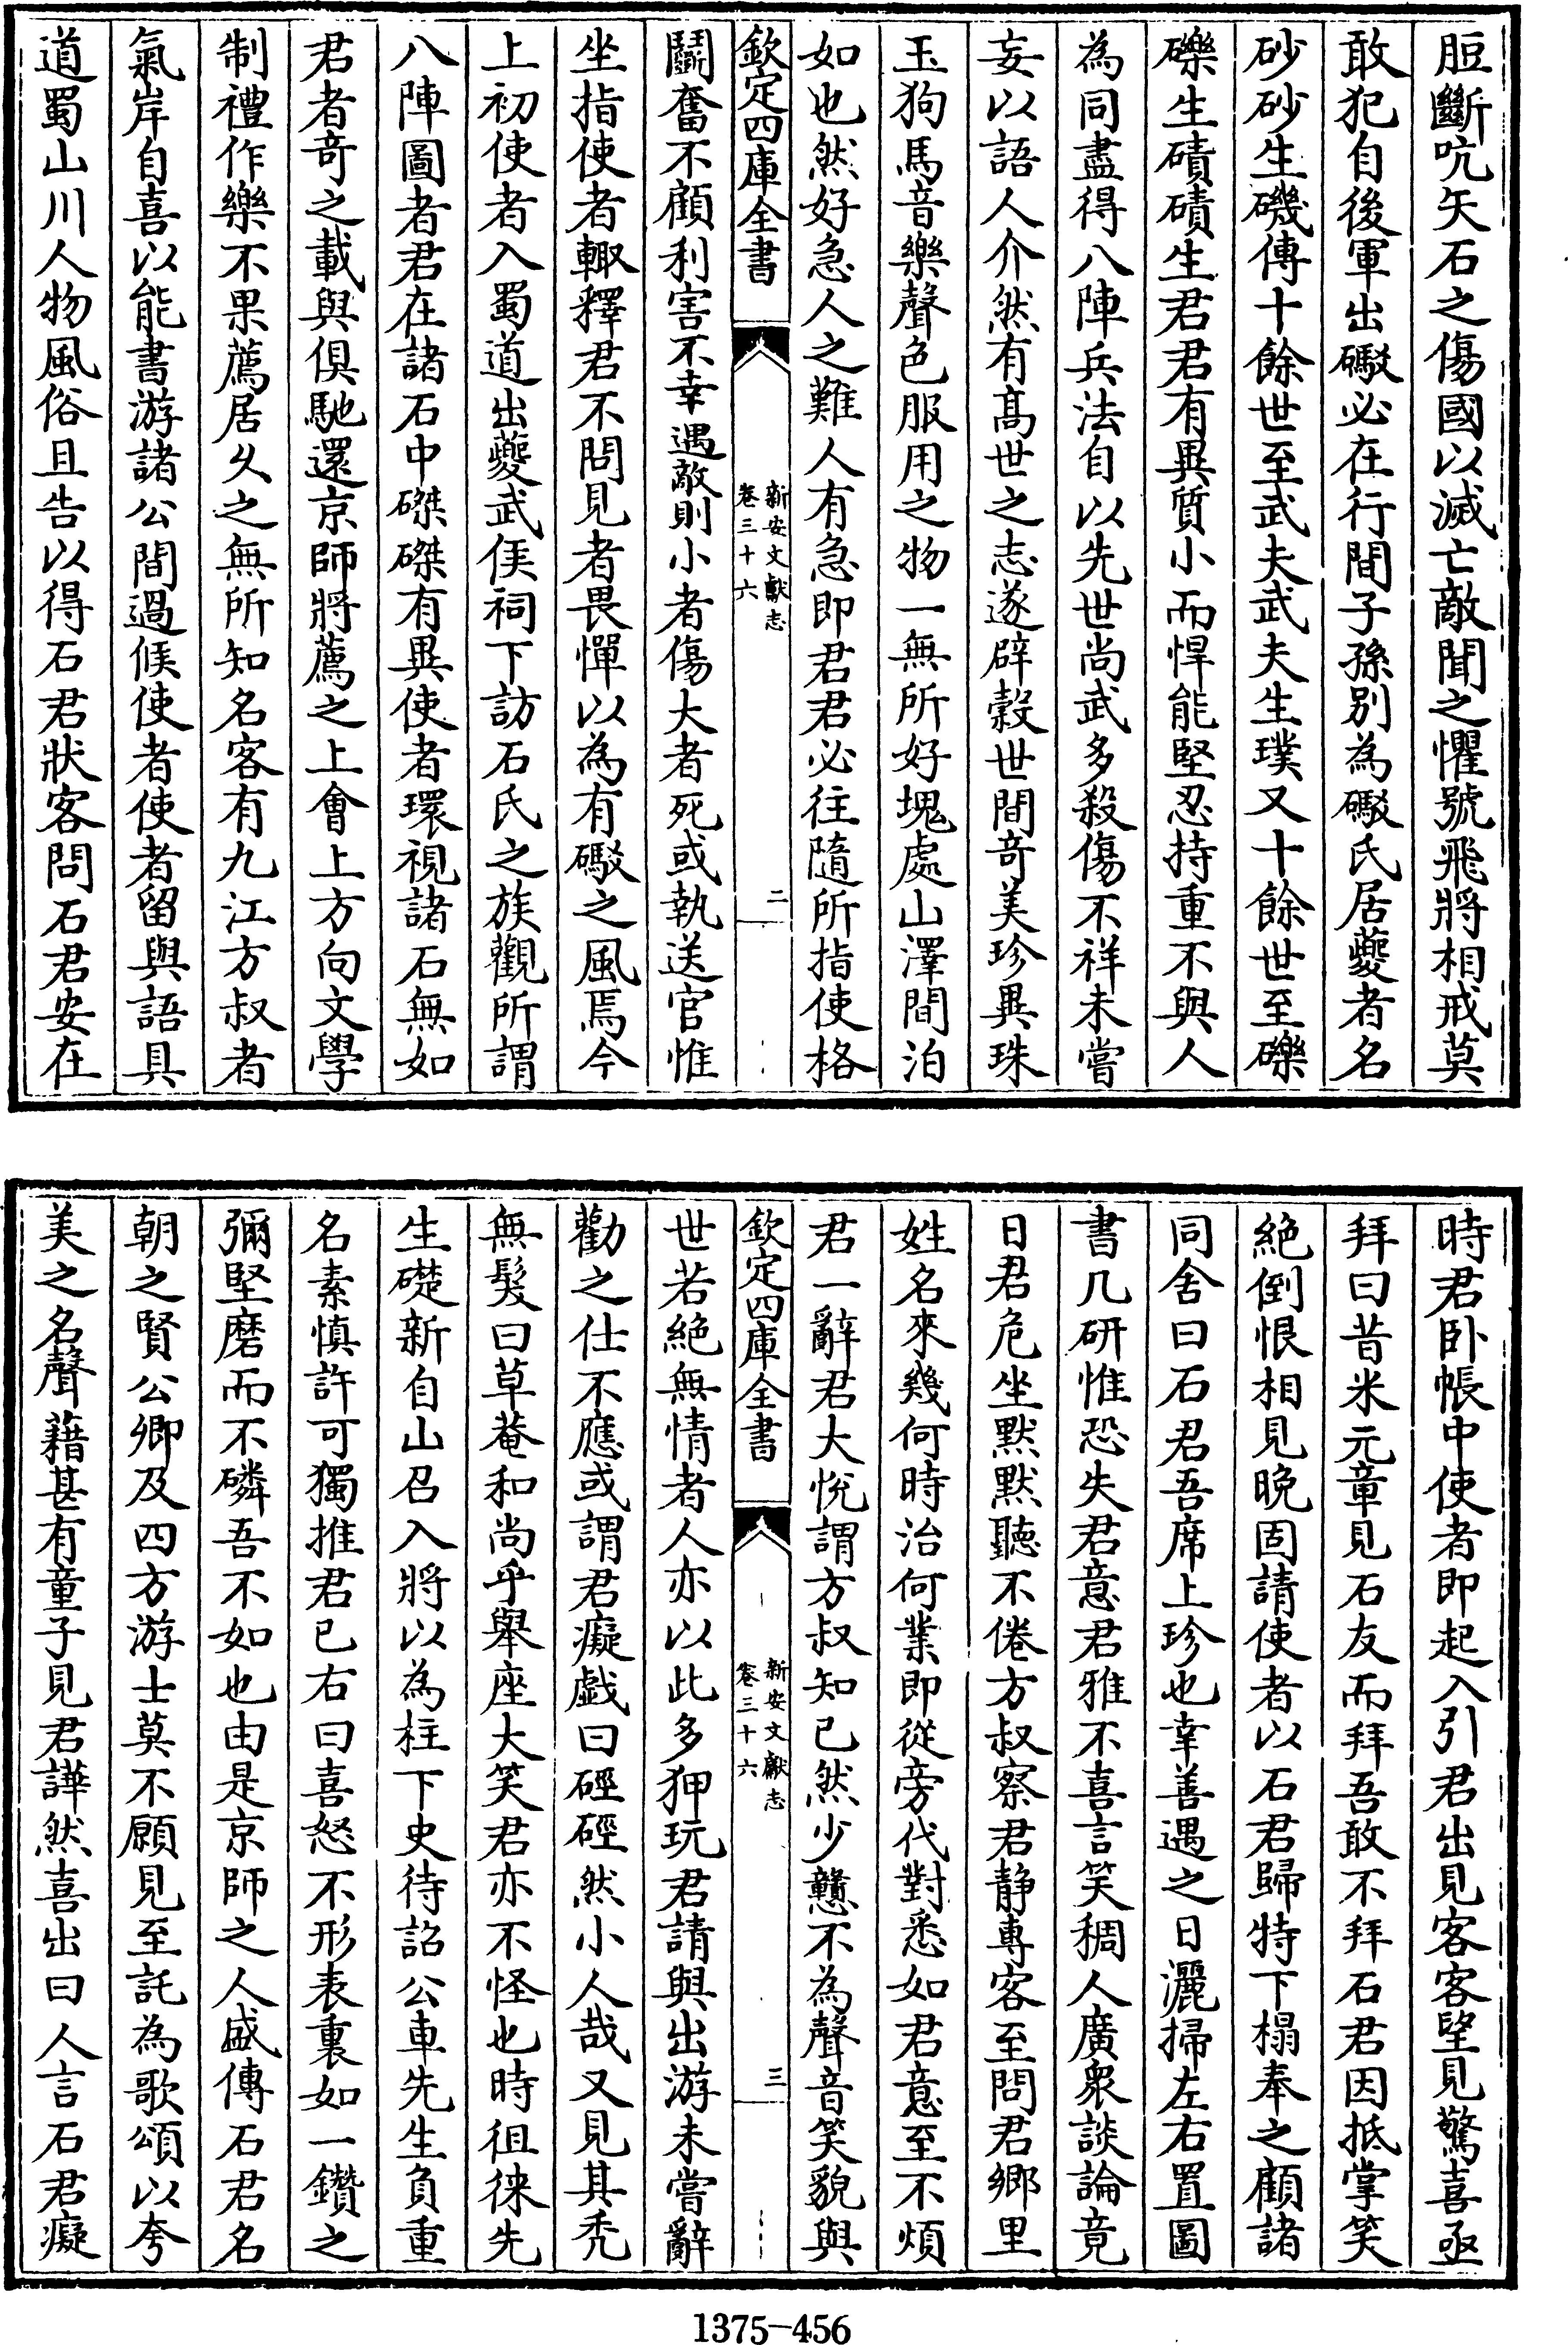 脰斷吭矢石之傷國以滅亡敵聞之懼號飛將相戒莫
敢犯自後軍出礟必在行間子孫别為礟氏居夔者名
砂砂生磯傳十餘世至武夫武夫生璞又十餘世至礫
礫生磧磧生君君有異質小而悍能堅忍持重不與人
為同盡得八陣兵法自以先世尚武多殺傷不祥未嘗
妄以語人介然有髙世之志遂辟榖世間竒美珍異珠
玉狗馬音樂聲色服用之物一無所好塊處山澤間泊
如也然好急人之難人有急即君君必往隨所指使格
欽定四庫全書
新安文獻志
卷三十六
二
鬭奮不顧利害不幸遇敵則小者傷大者死或執送官惟
坐指使者輙釋君不問見者畏憚以為有礟之風焉今
上初使者入蜀道出夔武侯祠下訪石氏之族觀所謂
八陣圖者君在諸石中磔磔有異使者環視諸石無如
君者竒之載與俱馳還京師將薦之上會上方向文學
制禮作樂不果薦居久之無所知名客有九江方叔者
氣岸自喜以能書游諸公間過候使者使者留與語具
道蜀山川人物風俗且告以得石君狀客問石君安在
時君卧帳中使者即起入引君出見客客望見驚喜亟
拜曰昔米元章見石友而拜吾敢不拜石君因抵掌笑
絶倒恨相見晚固請使者以石君歸特下榻奉之顧諸
同舍曰石君吾席上珍也幸善遇之日灑掃左右置圖
書几研惟恐失君意君雅不喜言笑稠人廣衆談論竟
日君危坐黙黙聽不倦方叔察君静專客至問君鄉里
姓名來幾何時治何業即從旁代對悉如君意至不煩
君一辭君大恱謂方叔知已然少戇不為聲音笑貌與
欽定四庫全書
新安文獻志
卷三十六
三
世若絶無情者人亦以此多狎玩君請與出游未嘗辭
勸之仕不應或謂君癡戲曰硜硜然小人哉又見其禿
無髮曰草菴和尚乎舉座大笑君亦不怪也時徂徠先
生礎新自山召入將以為柱下史待詔公車先生負重
名素慎許可獨推君已右曰喜怒不形表裏如一鑽之
彌堅磨而不磷吾不如也由是京師之人盛傳石君名
朝之賢公卿及四方游士莫不願見至託為歌頌以夸
美之名聲藉甚有童子見君譁然喜出曰人言石君癡
1375-456